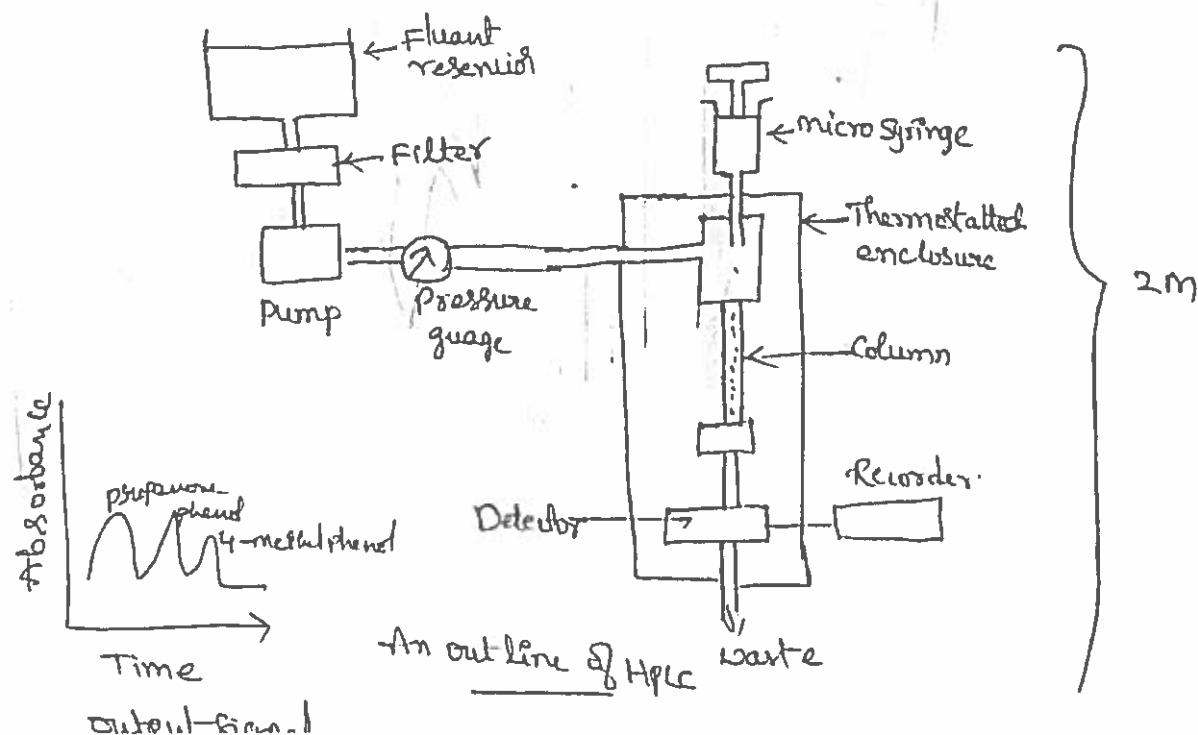 Fluant
resenuior
Filter
Pump
Pressure
guage
micro syringe
Thermostatted
enclosure
Column
Recorder.
Detector
waste
2M
Absorbance
propanone
phenol
4-methylphenol
Time
output signal
An out line of HPLC